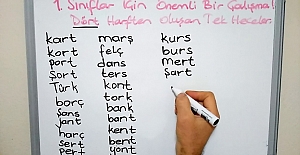 1. Sınıflar İçin Önemli Bir Çalışma!
Dört Harften Oluşan Tek Heceler.
kart
kort
port
Şort
Türk
borç
şans
jant
harç
sert
pert
marş
felç
dans
ters
kont
tork
bank
bant
kent
bent
yont
kurs
burs
mert
şart